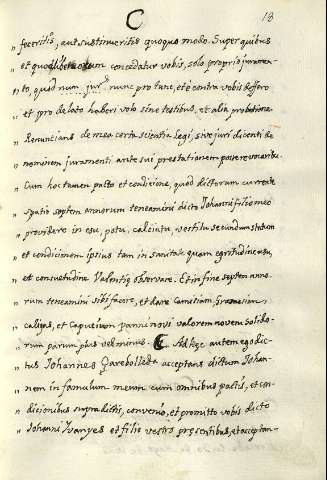 C 18
" feceritis, aut sustinueritis quoquo modo. Super quibus
" et quolibet eorum concedatur vobis, solo proprio juramen-
" to, quod nunc pro tunc, et è contra vobis deffero
" et pro delato haberi volo sine testibus, et alia probatione.
" Renuncians de mea certa scientia legi, sive juri dicenti Ne
" minem juramenti ante sui prestationem posse revocaribus.
" Cum hoc tamen pacto et condicione, quod dictorum currente
" spatio septem annorum teneamini dicto Johanni filio meo
" providere in esu, potu, calciatu, vestitu secundum statum
" et condicionem ipsius tam in sanitate quam egritudine usu,
" et consuetudine Valentiȩ observare. Et in fine septem anno-
" rum teneamini sibi facere, et dare Camisiam, gramasiam,
" caligas, et Capucium panni novi valorem novem solido-
" rum parum plus vel minus. Ad hȩc autem ego dic-
" tus Johannes Çarebolleda acceptans dictum Johan-
" nem in famulum meum cum omnibus pactis, et con-
" dicionibus supradictis, convenio, et promitto vobis dicto
" Johanni Ivanyes et filio vestro prȩsentibus, et acceptan-